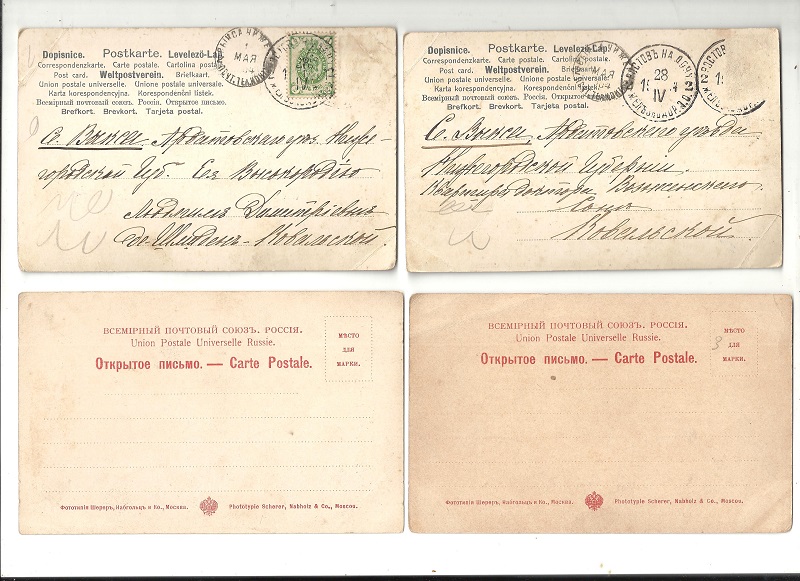 Dopisnice. Postkarte. Levelező-Lap.
Correspondenzkarte. Carte postale. Cartolina postale.
Post card. Weltpostverein. Briefkaart.
Union postale universelle. Unione postale universale.
Karta korespondencyjna. Korespondenční lístek.
Всемірный почтовый союзъ. Россія. Открытое письмо.
Brefkort. Brevkort. Tarjeta postal.
МАЯ
С. Выкса, Ардатовскаго уѣз. Ниже-
городской Губ. Ея Высокородію
Людмилѣ Дмитріевнѣ
Ковальской.
Dopisnice. Postkarte. Levelező-Lap.
Correspondenzkarte. Carte postale. Cartolina postale.
Post card. Weltpostverein. Briefkaart.
Union postale universelle. Unione postale universale.
Karta korespondencyjna. Korespondenční lístek.
Всемірный почтовый союзъ. Россія. Открытое письмо.
Brefkort. Brevkort. Tarjeta postal.
МАЯ
РОСТОВЪ НА ДОНУ
28
IV
РОСТОВ
С. Выкса, Ардатовскаго уѣзда
Нижегородской Губерніи.
Квартира доктора
Ковальской.
ВСЕМІРНЫЙ ПОЧТОВЫЙ СОЮЗЪ. РОССІЯ.
Union Postale Universelle Russie.
Открытое письмо. — Carte Postale.
МѢСТО
ДЛЯ
МАРКИ.
Фототипія Шереръ, Набгольцъ и Ко., Москва. Phototypie Scherer, Nabholz & Co., Moscou.
ВСЕМІРНЫЙ ПОЧТОВЫЙ СОЮЗЪ. РОССІЯ.
Union Postale Universelle Russie.
Открытое письмо. — Carte Postale.
МѢСТО
ДЛЯ
МАРКИ.
3
Фототипія Шереръ, Набгольцъ и Ко., Москва. Phototypie Scherer, Nabholz & Co., Moscou.